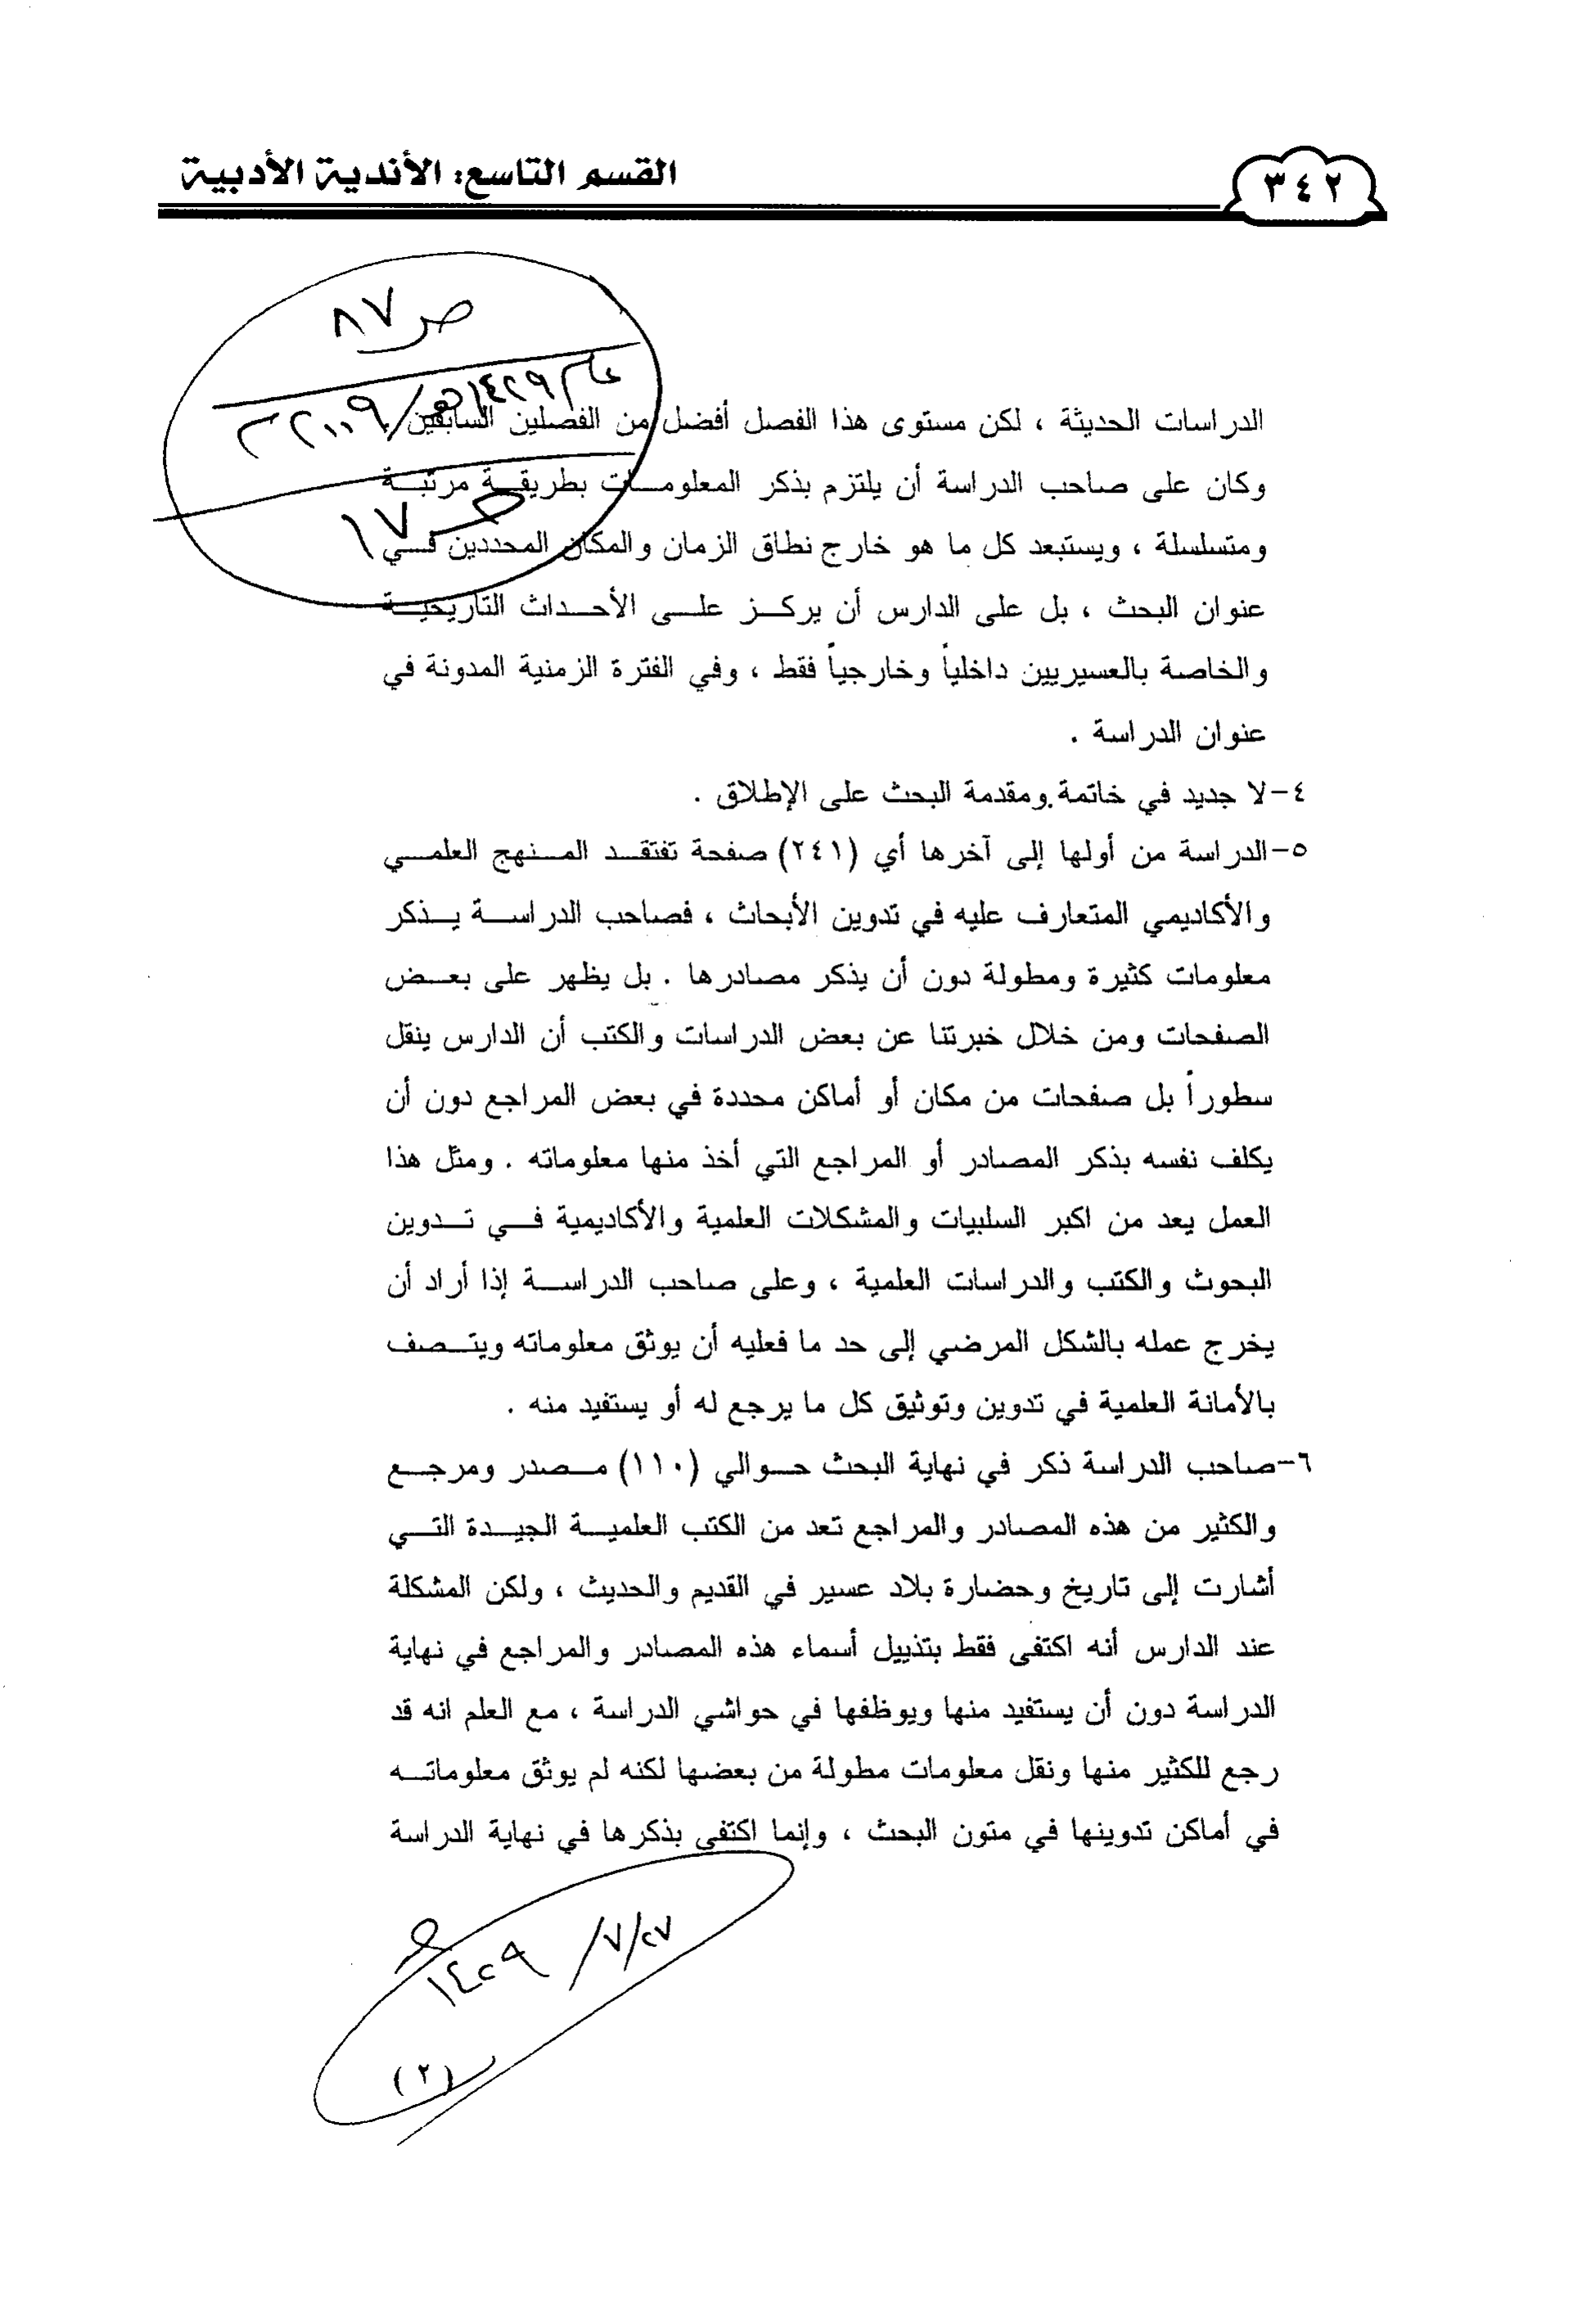 ٣٤٢
القسم التاسع: الأندية الأدبية
ص ٨٧
عام ١٤٢٩هـ/٢٠٠٩م
ص ١٧
الدراسات الحديثة ، لكن مستوى هذا الفصل أفضل من الفصلين السابقين .
وكان على صاحب الدراسة أن يلتزم بذكر المعلومات بطريقة مرتبة
ومتسلسلة ، ويستبعد كل ما هو خارج نطاق الزمان والمكان المحددين في
عنوان البحث ، بل على الدارس أن يركز على الأحداث التاريخية
والخاصة بالعسيريين داخلياً وخارجياً فقط ، وفي الفترة الزمنية المدونة في
عنوان الدراسة .
٤-لا جديد في خاتمة ومقدمة البحث على الإطلاق .
٥-الدراسة من أولها إلى آخرها أي (٢٤١) صفحة تفتقد المنهج العلمي
والأكاديمي المتعارف عليه في تدوين الأبحاث ، فصاحب الدراسة يذكر
معلومات كثيرة ومطولة دون أن يذكر مصادرها . بل يظهر على بعض
الصفحات ومن خلال خبرتنا عن بعض الدراسات والكتب أن الدارس ينقل
سطوراً بل صفحات من مكان أو أماكن محددة في بعض المراجع دون أن
يكلف نفسه بذكر المصادر أو المراجع التي أخذ منها معلوماته . ومثل هذا
العمل يعد من اكبر السلبيات والمشكلات العلمية والأكاديمية في تدوين
البحوث والكتب والدراسات العلمية ، وعلى صاحب الدراسة إذا أراد أن
يخرج عمله بالشكل المرضي إلى حد ما فعليه أن يوثق معلوماته ويتصف
بالأمانة العلمية في تدوين وتوثيق كل ما يرجع له أو يستفيد منه .
٦-صاحب الدراسة ذكر في نهاية البحث حوالي (١١٠) مصدر ومرجع
والكثير من هذه المصادر والمراجع تعد من الكتب العلمية الجيدة التي
أشارت إلى تاريخ وحضارة بلاد عسير في القديم والحديث ، ولكن المشكلة
عند الدارس أنه اكتفى فقط بتذييل أسماء هذه المصادر والمراجع في نهاية
الدراسة دون أن يستفيد منها ويوظفها في حواشي الدراسة ، مع العلم انه قد
رجع للكثير منها ونقل معلومات مطولة من بعضها لكنه لم يوثق معلوماته
في أماكن تدوينها في متون البحث ، وإنما اكتفى بذكرها في نهاية الدراسة
٢٧/٧/١٤٢٩هـ
(٢)